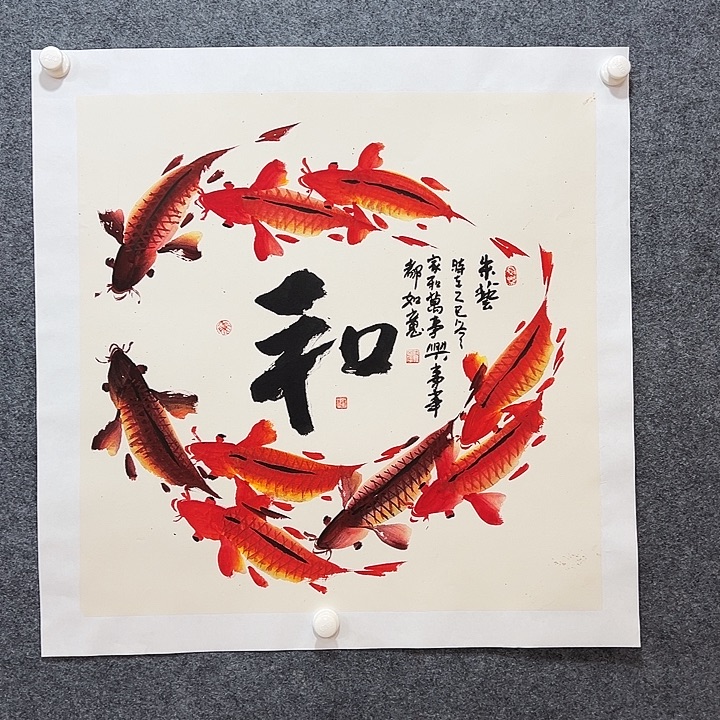 和
朱藝
時在乙巳冬
家和萬事興
都如意